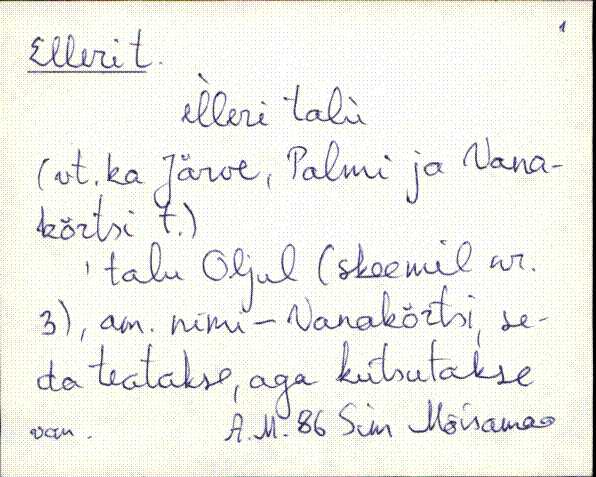 1
Elleri t.
èlleri talù
(vt. ka Järve, Palmi ja Vana-
kõrtsi t.)
talu Oljul (skeemil nr.
3), am. nimi – Vanakõrtsi, se-
da teatakse, aga kutsutakse
van. A.M. 86 Sim Mõisamaa